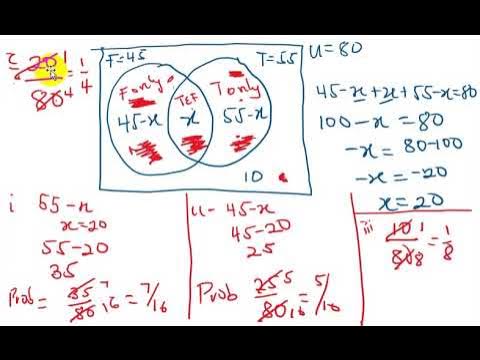 c 20 1 / 80 4 = 1/4
F=45
T=55
U=80
F only
T&F
T only
45-x
x
55-x
10
45-x+x+55-x=80
100-x=80
-x=80-100
-x=-20
x=20
i 55-x
x=20
55-20
35
Prob = 35 7 / 80 16 = 7/16
ii- 45-x
45-20
25
Prob 25 5 / 80 16 = 5/16
iii 10 1 / 80 8 = 1/8